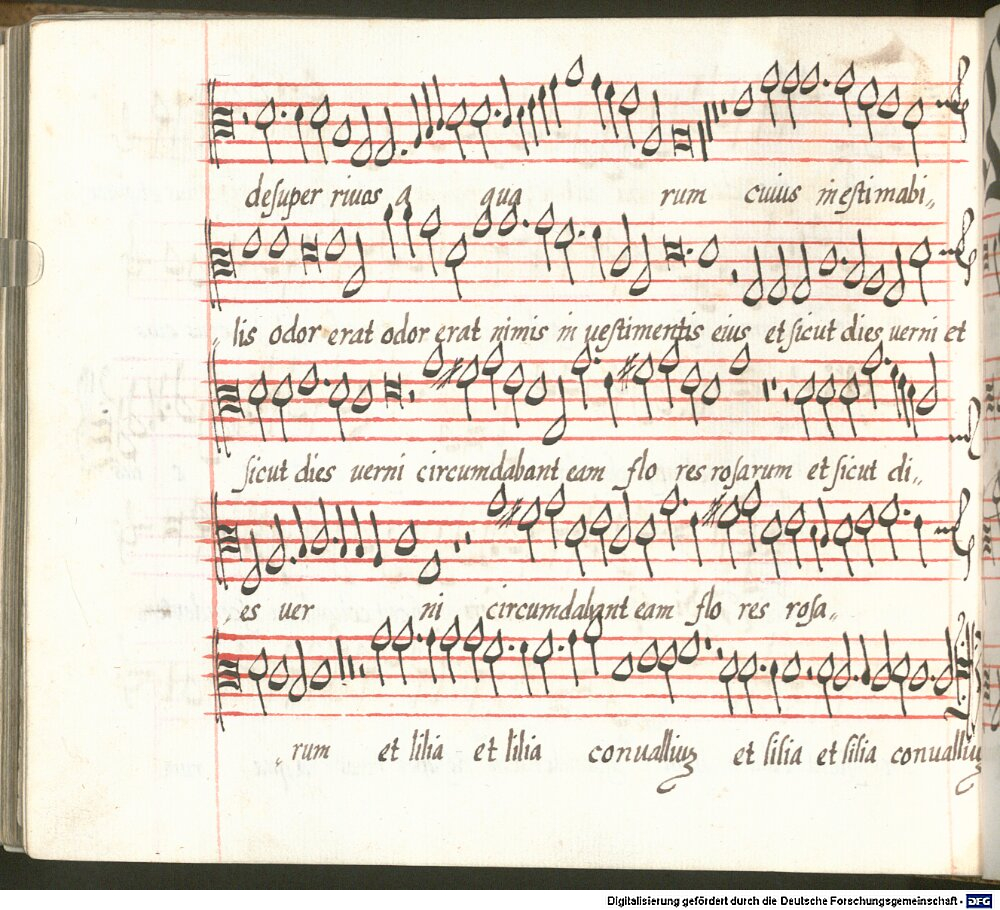 desuper rivos a qua rum cuius inestimabi„
„lis odor erat odor erat nimis in uestimentis eius et sicut dies uerni et
sicut dies uerni circumdabant eam flo res rosarum et sicut di„
es uer ni circumdabant eam flo res rosa„
„rum et lilia et lilia conualliuʒ et lilia et lilia conualliuʒ
Digitalisierung gefördert durch die Deutsche Forschungsgemeinschaft - DFG